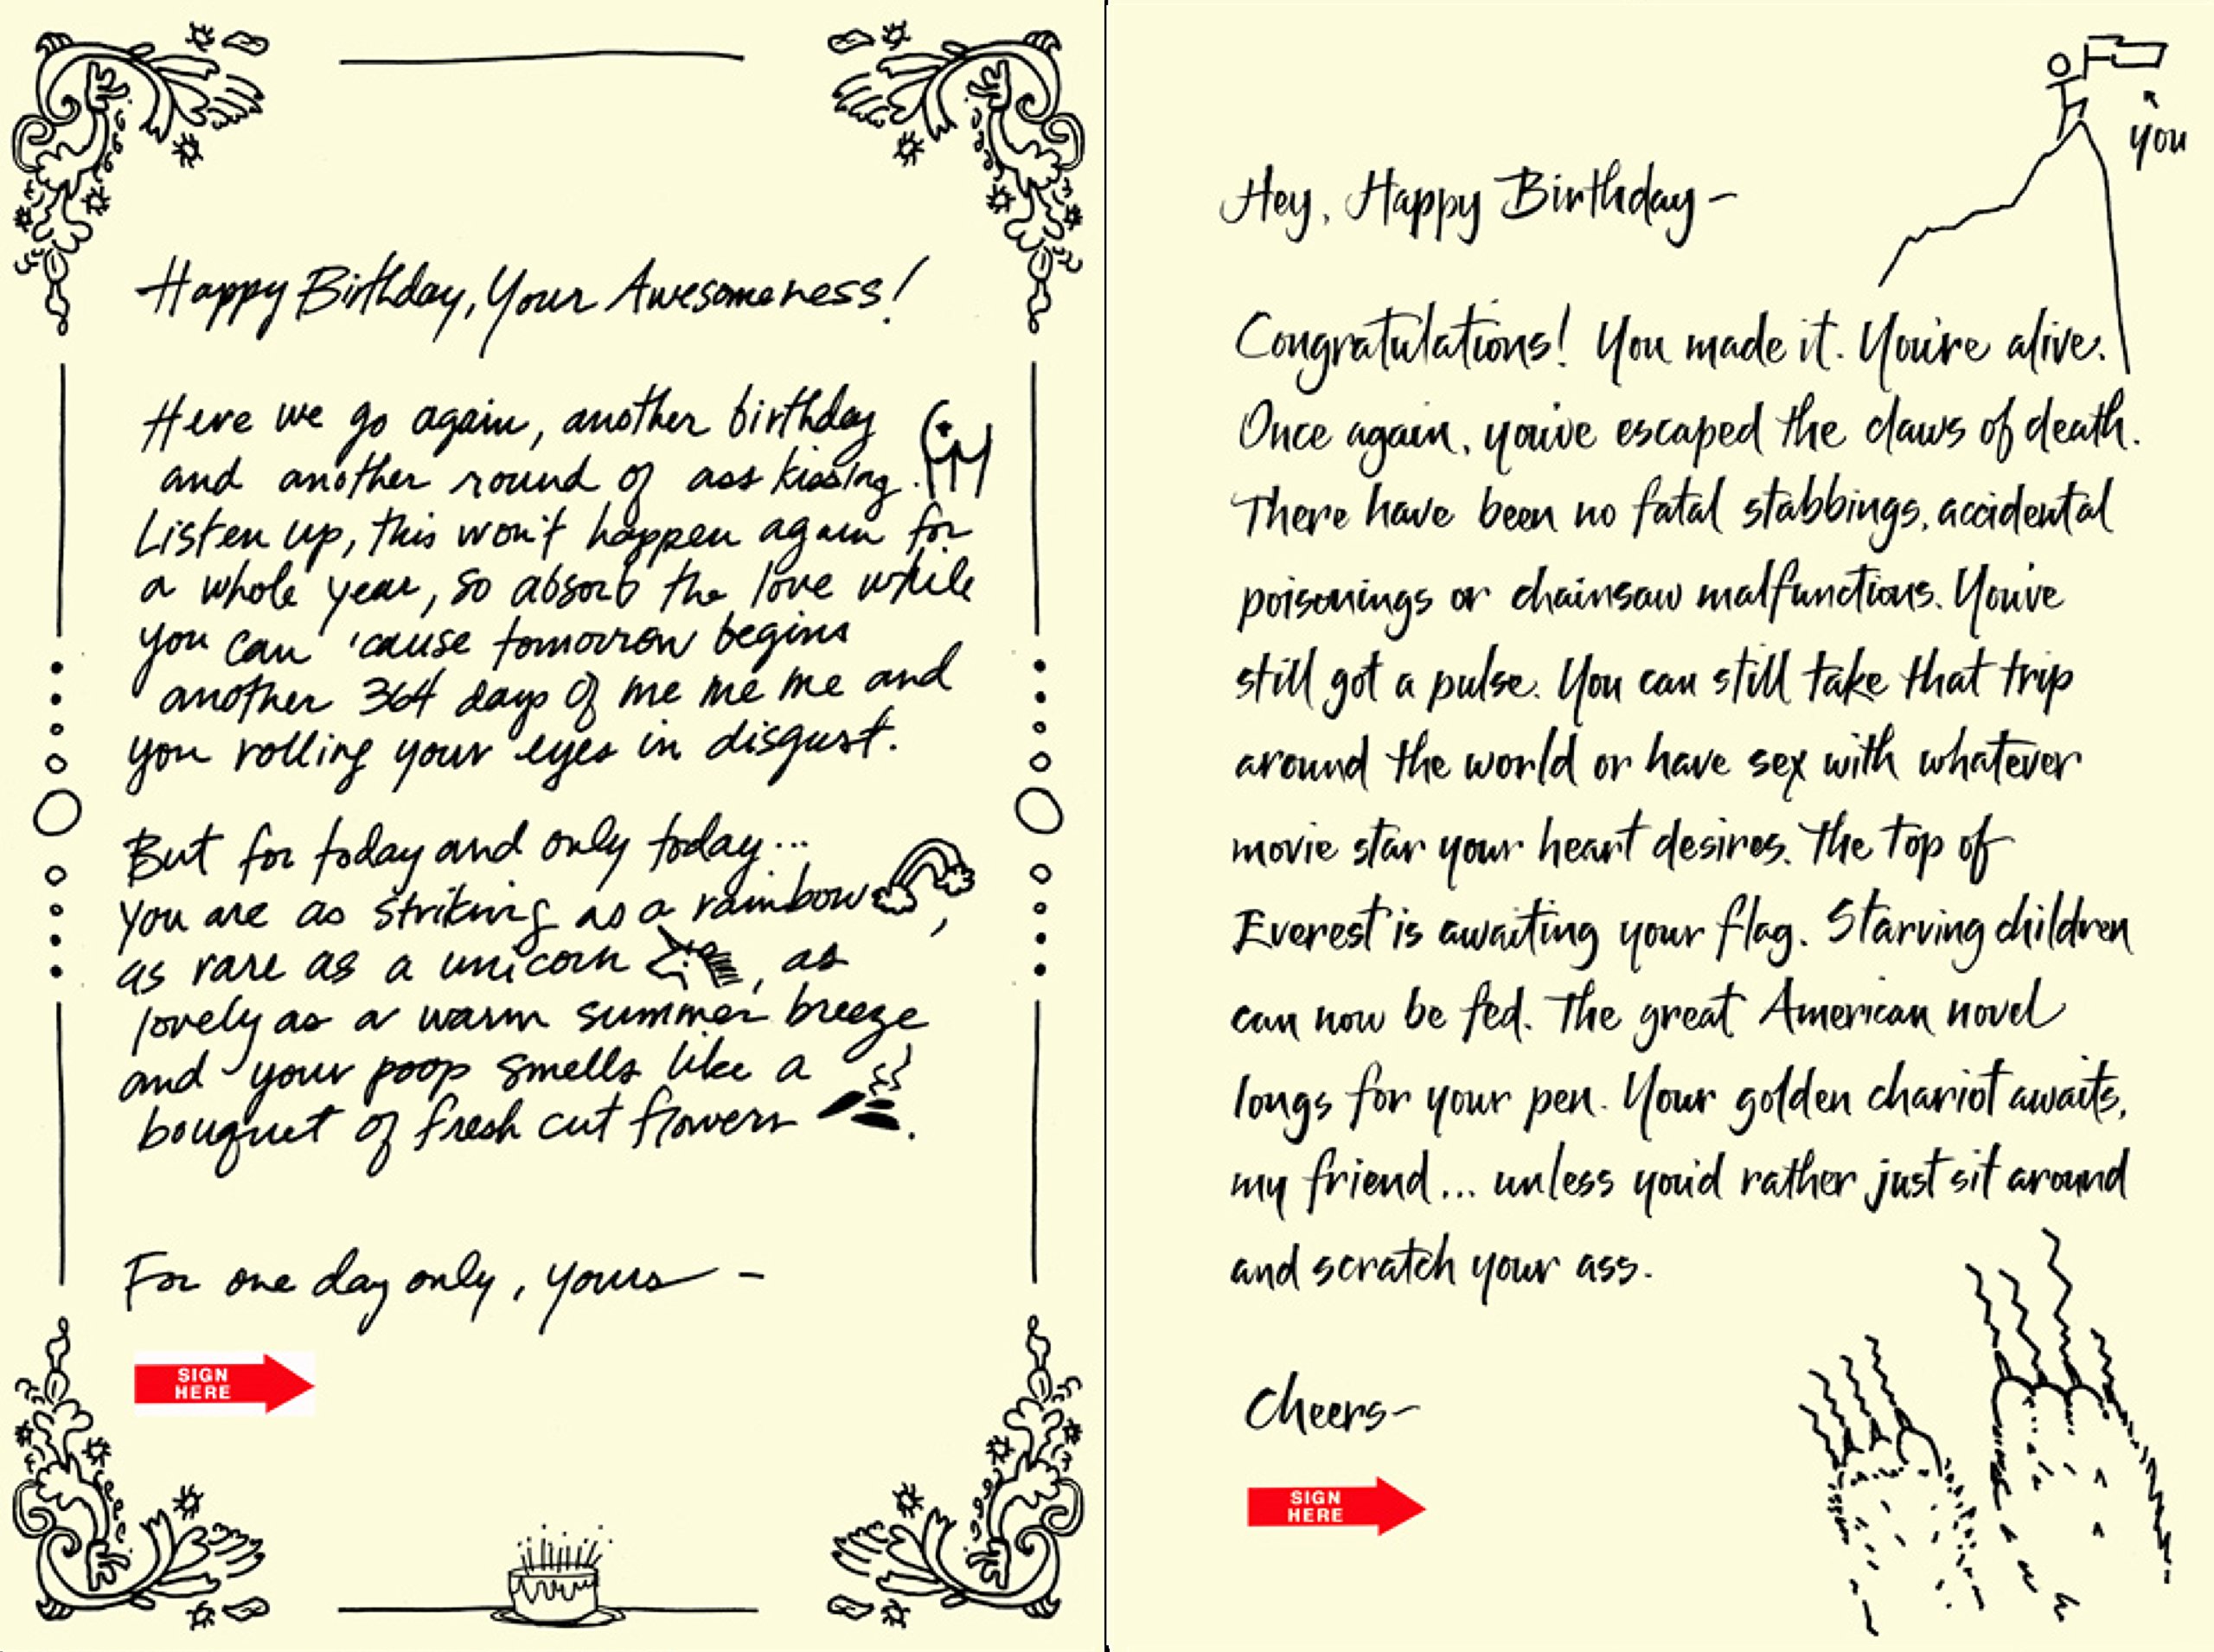 Happy Birthday, Your Awesomeness!
Here we go again, another birthday
and another round of ass kissing.
Listen up, this won't happen again for
a whole year, so absorb the love while
you can 'cause tomorrow begins
another 364 days of me me me and
you rolling your eyes in disgust.
But for today and only today...
you are as striking as a rainbow,
as rare as a unicorn, as
lovely as a warm summer breeze
and your poop smells like a
bouquet of fresh cut flowers.
For one day only, yours -
SIGN
HERE
you
Hey, Happy Birthday-
Congratulations! You made it. You're alive.
Once again, you've escaped the claws of death.
There have been no fatal stabbings, accidental
poisonings or chainsaw malfunctions. You've
still got a pulse. You can still take that trip
around the world or have sex with whatever
movie star your heart desires. The top of
Everest is awaiting your flag. Starving children
can now be fed. The great American novel
longs for your pen. Your golden chariot awaits,
my friend... unless you'd rather just sit around
and scratch your ass.
Cheers-
SIGN
HERE